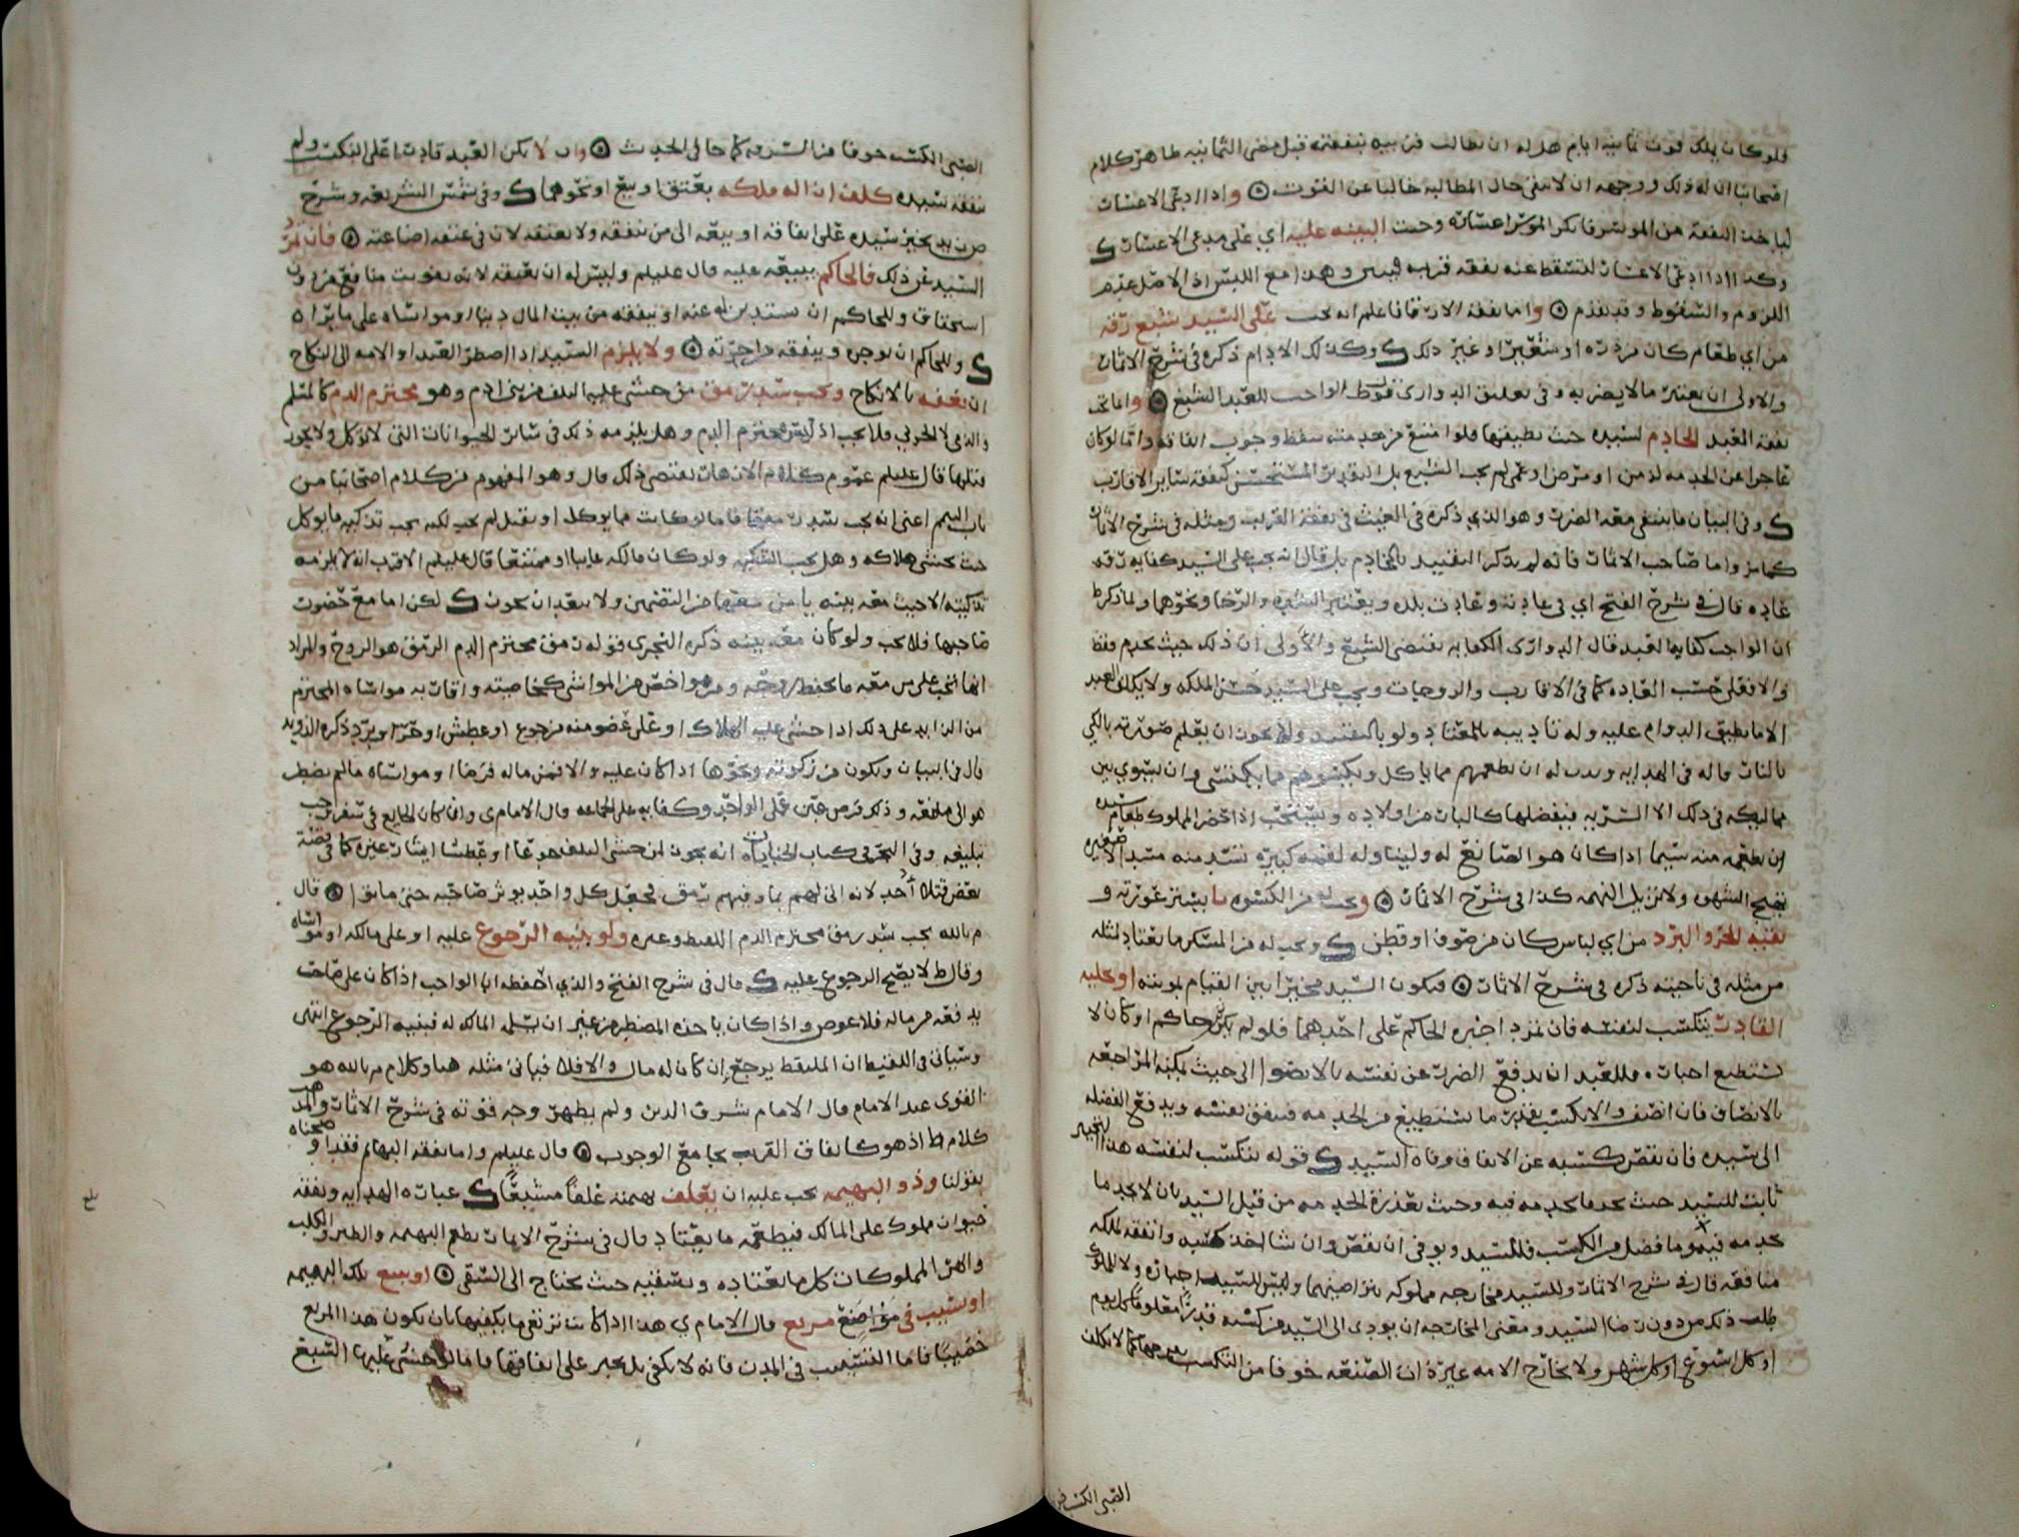 فلو كان يملك قوت ثمانية ايام هل له ان يطالب قريبه بنفقته قبل مضي الثمانية ظاهر كلام
اصحابنا ان له ذلك ووجهه ان لا يبقى حال المطالبة خاليا عن القوت ۞ واذا ادعى الاعسار
لياخذ النفقة من الموسر فانكر الموسر اعساره وجبت البينه عليه اي على مدعي الاعسار ك
وكذا اذا ادعى الاعسار لتسقط عنه نفقة قريبه وهذا مع اللبس اذ الاصل عدم
اللزوم والسقوط وقد تقدم ۞ واما نفقة الارقا فاعلم انه يجب على السيد شبع رقه
من اي طعام كان من ذرة او شعير او غير ذلك ك وكذلك الادام ذكره في شرح الاثمار
والاولى ان يعتبر ما لا يضر به وفي تعليق الدواري قوله الواجب للعبد الشبع ۞ وانما تجب
نفقة العبد الخادم لسيده حيث يطيقها فلو امتنع من خدمته سقط وجوب انفاقه واما لو كان
عاجزا عن الخدمه لزمن او مرض او عمى لم يجب الشبع بل كنفقة ساير الاقارب
ك وفي البيان ما ينفي معه الضرر وهو الذي ذكره في الغيث في نفقة القريب ومثله في شرح الاثمار
كما مر واما صاحب الاثمار فانه لم يذكر التقييد بالخادم بل قال انه يجب على السيد كفاية رقه
عاده قال في شرح الفتح اي في عادته وعادة بلده ويعتبر الشده والرخا ونحوهما ولما ذكر ط
ان الواجب كفاية العبد قال الدواري الكفايه تقتضي الشبع والاولى ان ذلك حيث يخدم فقط
والا فعلى حسب العاده كما في الاقارب والزوجات ويجب على السيد حسن الملكه ولا يكلف العبد
الا ما يطيق الدوام عليه وله تاديبه بالمعتاد ولو بالتقييد ولا يجوز ان يعلم صورته بالكي
بالنار قاله في الهدايه وندب له ان يطعمهم مما ياكل ويكسوهم مما يكتسي وان يسوي بين
مماليكه في ذلك الا السريه فيفضلها كالبات من اولاده ويستحب اذا حضر المملوك طعام سيده
ان يطعمه منه سيما اذا كان هو الصانع له وليناوله لقمه كبيره تسد منه مسدا لا صغيره
تهيج الشهوه ولا تزيل النهمه كذا في شرح الاثمار ۞ ويجب له من الكسوه ما يستر عورته و
تقيه الحر والبرد من اي لباس كان من صوف او قطن ك ويجب له من المسكن ما يعتاد لمثله
من مثله في ناحيته ذكره في شرح الاثمار ۞ فيكون السيد مخيرا بين القيام بمونته او تخليه
القادر يتكسب لنفسه فان تمرد اجبره الحاكم على احدهما فلو لم يكن حاكم او كان لا
يستطيع اجباره فللعبد ان يدفع الضرر عن نفسه بالانضوا الى حيث يمكنه المراجعه
بالانصاف فان انصف والا تكسب بقدر ما يستطيع من الخدمه فينفق نفسه ويدفع الفضله
الى سيده فان نقص كسبه عن الانفاق وفاه السيد ك قوله يتكسب لنفسه هذا التخيير
ثابت للسيد حيث يجد ما يخدمه فيه وحيث تعذرت الخدمه من قبل السيد بان لا يجد ما
يخدمه فيه وما فضل من الكسب فللسيد ويوفي ان نقص وان شا اخذ كسبه وانفقه لملكه
منافعه قال في شرح الاثمار وللسيد مخارجه مملوكه بتراضيهما وليس للسيد اجباره ولا للمملوك
طلب ذلك من دون رضا السيد ومعنى المخارجه ان يودي الى السيد من كسبه قدرا معلوما كل يوم
او كل اسبوع او كل شهر ولا يخارج الامه غير ذات الصنعه خوفا من التكسب بفرجها كما لا يكلف
الصبي الكسب خوفا
الصبي الكسب خوفا من السرقه كما جا في الحديث ۞ وان لا يكن العبد قادرا على التكسب ولم
ينفقه سيده كلف ازاله ملكه بعتق او بيع او نحوهما ك وفي شمس الشريعه وشرح
بل يخير سيده على انفاقه او بيعه الى من ينفقه ولا يعتقه لان في عتقه اضاعته ۞ فان تمرد
السيد عن ذلك فالحاكم يبيعه عليه قال عليلم وليس له ان يعتقه لانه تفويت منافع من دون
استحقاق وللحاكم ان يستدين له عنه او ينفقه من بيت المال دينا او مواساه على ما يراه
ك وللحاكم ان يوجره وينفقه من اجرته ۞ ولا يلزم السيد اذا اضطر العبد او الامه الى النكاح
ان يعفه بالانكاح ويجب سد رمق من خشي عليه التلف من بني ادم وهو محترم الدم كالمسلم
والذمي لا الحربي فلا يجب اذ ليس محترم الدم وهل يلزمه ذلك في سائر الحيوانات التي لا توكل ولا يجوز
قتلها قال عليلم عموم كلام الازهار يقتضي ذلك قال وهو المفهوم من كلام اصحابنا من
باب التيمم اعني انه يجب سد رمقها فاما لو كانت مما يوكل او يقتل لم يجب لكنه يجب تذكيه ما يوكل
حيث يخشى هلاكه وهل يجب التذكيه ولو كان مالكه غايبا او ممتنعا قال عليلم الاقرب انه لا يلزمه
تذكيته الا حيث معه بينه يامن معها من التضمين ولا يبعد ان يجوز ك لكن اما مع حضور
صاحبها فلا يجب ولو كان معه بينه ذكره النجري قوله رمق محترم الدم الرمق هو الروح والمراد
انها تجب على من معه ما يحفظ روحه وهو اخص من المواشي كخاصيته واقاربه مواساه المحترم
من الزايد على ذلك اذا خشي عليه الهلاك او على عضو منه من جوع او عطش او حر او برد ذكره الزويد
قال في البيان ويكون من زكوته ونحوها اذا كان عليه والا فمن ماله قرضا او مواساه ما لم يضطر
هو الى منفعه وذكر فرض عين على الواحد وكفايه على الجماعه قال الامام ي وان كان الجايع في سفر وجب
تبليغه وفي البحر في كتاب الجنايات انه يجوز لمن خشي التلف جوعا او عطشا ايثار غيره كما في قصة
بعض قتلا احد لانه اتي لهم بما وفيهم رمق فجعل كل واحد يوثر صاحبه حتى ماتوا ۞ قال
م بالله يجب سد رمق محترم الدم اللقيط وغيره ولو بنيه الرجوع عليه او على مالكه او مواساه
وقال ط لا يصح الرجوع عليه ك قال في شرح الفتح والذي احفظه ان الواجب اذا كان على صاحب
يدفعه من ماله فلا عوض واذا كان ياخذه المضطر من غير ان يسلمه المالك له فبنيه الرجوع انتهى
وسياتي في اللقيط ان الملتقط يرجع ان كان له مال والا فلا فياتي مثله هنا وكلام م بالله هو
القوي عند الامام قال الامام شرف الدين ولم يظهر وجه قوته في شرح الاثمار والمذهب
كلام ط اذ هو كانفاق القريب بجامع الوجوب ۞ قال عليلم واما نفقه البهائم فقد اوضحناه
بقولنا وذو البهيمه يجب عليه ان يعلف بهيمته علفا مشبعا ك عبارة الهدايه ونفقه
حيوان مملوك على المالك فيطعمه ما يعتاد قال في شرح الاثمار يطعم البهيمه والطير والكلب
والهر المملوكات كل ما يعتاده ويسقيه حيث يحتاج الى السقي ۞ او يبيع تلك البهيمه
او يسيب في مواضع مرتع قال الامام ي هذا اذا كانت ترتعي ما يكفيها بان يكون هذا المرتع
خصيبا فاما التسييب في المدن فانه لا يكفي بل يجبر على انفاقها فاما لو خشي عليها السبع